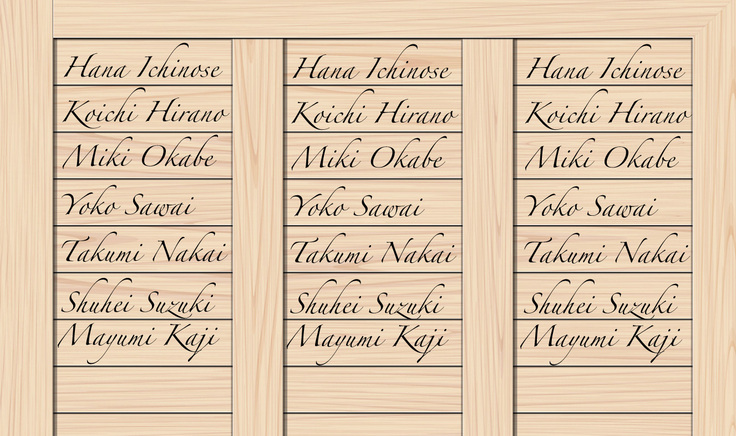 Hana Ichinose
Koichi Hirano
Miki Okabe
Yoko Sawai
Takumi Nakai
Shuhei Suzuki
Mayumi Kaji
Hana Ichinose
Koichi Hirano
Miki Okabe
Yoko Sawai
Takumi Nakai
Shuhei Suzuki
Mayumi Kaji
Hana Ichinose
Koichi Hirano
Miki Okabe
Yoko Sawai
Takumi Nakai
Shuhei Suzuki
Mayumi Kaji